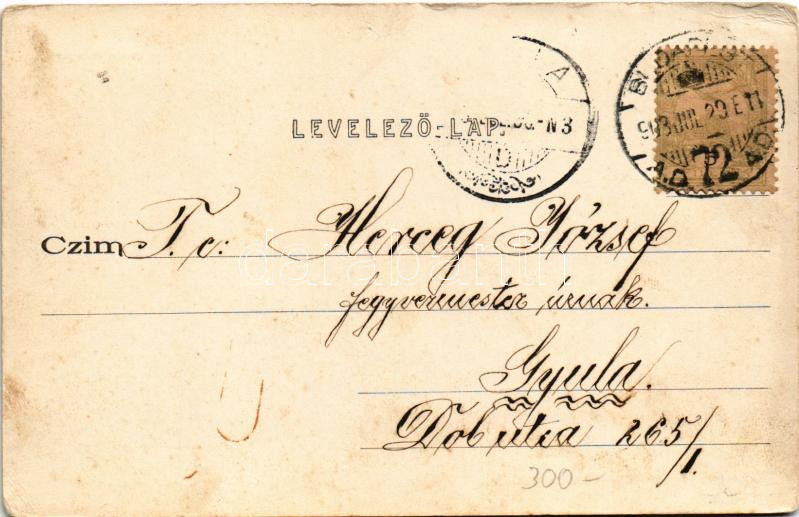 LEVELEZŐ-LAP.
BUDAPEST
903 JUL 29 E 11
72
N3
D
Czim T. c: Herceg József
fegyvermester úrnak.
Gyula.
Dob utca 265/1.
300-
darabanth